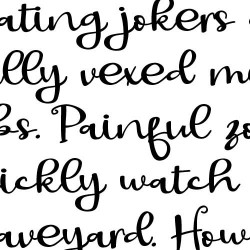 ating jokers
lly vexed m
bs. Painful zo
ickly watch
aveyard. How